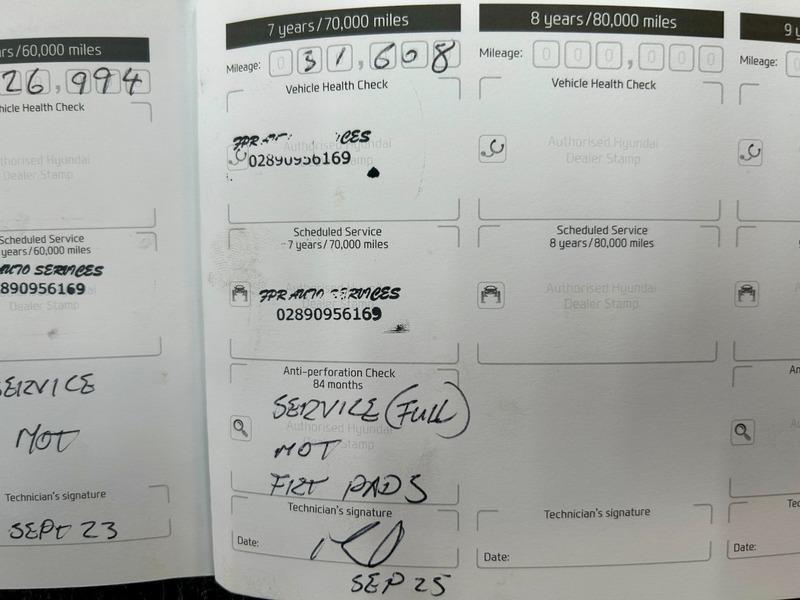 rs/60,000 miles
26,994
hicle Health Check
thorised Hyundai
Dealer Stamp
Scheduled Service
years/60,000 miles
AUTO SERVICES
890956169
Dealer Stamp
SERVICE
MOT
Technician's signature
SEPT 23
7 years/70,000 miles
Mileage: 0 31,608
Vehicle Health Check
FPR
ICES
Authorised Hyundai
02890956169
Scheduled Service
7 years/70,000 miles
FPR AUTO SERVICES
02890956169
Anti-perforation Check
84 months
SERVICE (FULL)
Authorised Hyundai
MOT
Dealer Stamp
FRT PADS
Technician's signature
Date:
SEP 25
8 years/80,000 miles
Mileage: 000,000
Vehicle Health Check
Authorised Hyundai
Dealer Stamp
Scheduled Service
8 years/80,000 miles
Authorised Hyundai
Dealer Stamp
Technician's signature
Date:
9 y
Mileage: 0
An
Te
Date: